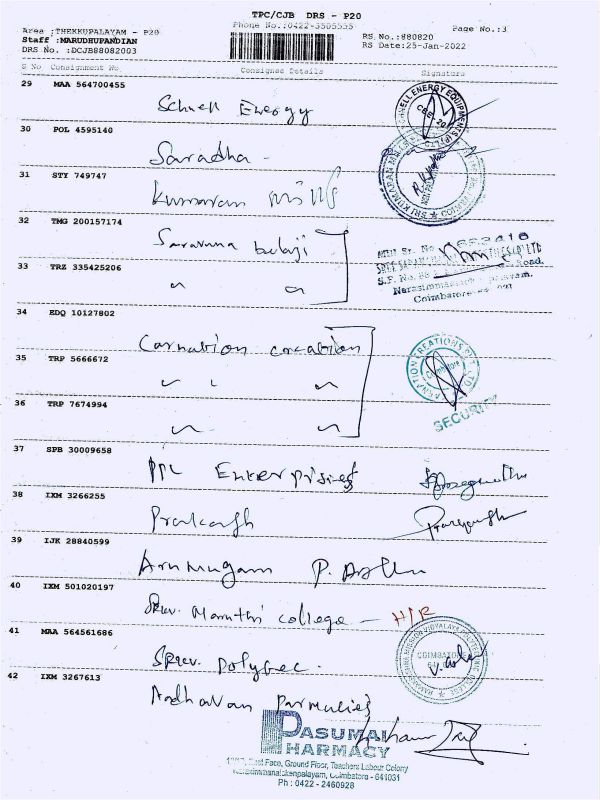 TPC/CJB DRS - P20
Phone No.:0422-3505555
Page No.:3
Area :THEKKUPALAYAM - P20
Staff :MARUDHUPANDIAN
DRS No. :DCJB88082003
RS No.:880820
RS Date:25-Jan-2022
S No Consignment No Consignee Details Signature
29 MAA 564700455
Schnell Energy
SCHNELL ENERGY EQUIPMENTS (P) LTD
CBE - 20
30 POL 4595140
Saradha -
31 STY 749747
Kumaran Mills
SRI KUMARAN MILLS
32 TMG 200157174
Saravana balaji
33 TRZ 335425206
" "
S.F. No. 88 Road,
Narasimmanaicken Palayam,
Coimbatore
34 EDQ 10127802
Carnation creation
CARNATION CREATIONS PVT. LTD
Coimbatore
SECURITY
35 TRP 5666672
" " "
36 TRP 7674994
" "
37 SPB 30009658
PPL Enterprises
38 IXM 3266255
Prakash
39 IJK 28840599
Arumugam P.
40 IXM 501020197
Maruthi college - H/R
41 MAA 564561686
Polytec.
COIMBATORE
42 IXM 3267613
Aadhavan
PASUMAI
PHARMACY
East Face, Ground Floor, Teachers Labour Colony
Narasimmanaickenpalayam, Coimbatore - 641031
Ph : 0422 - 2460928